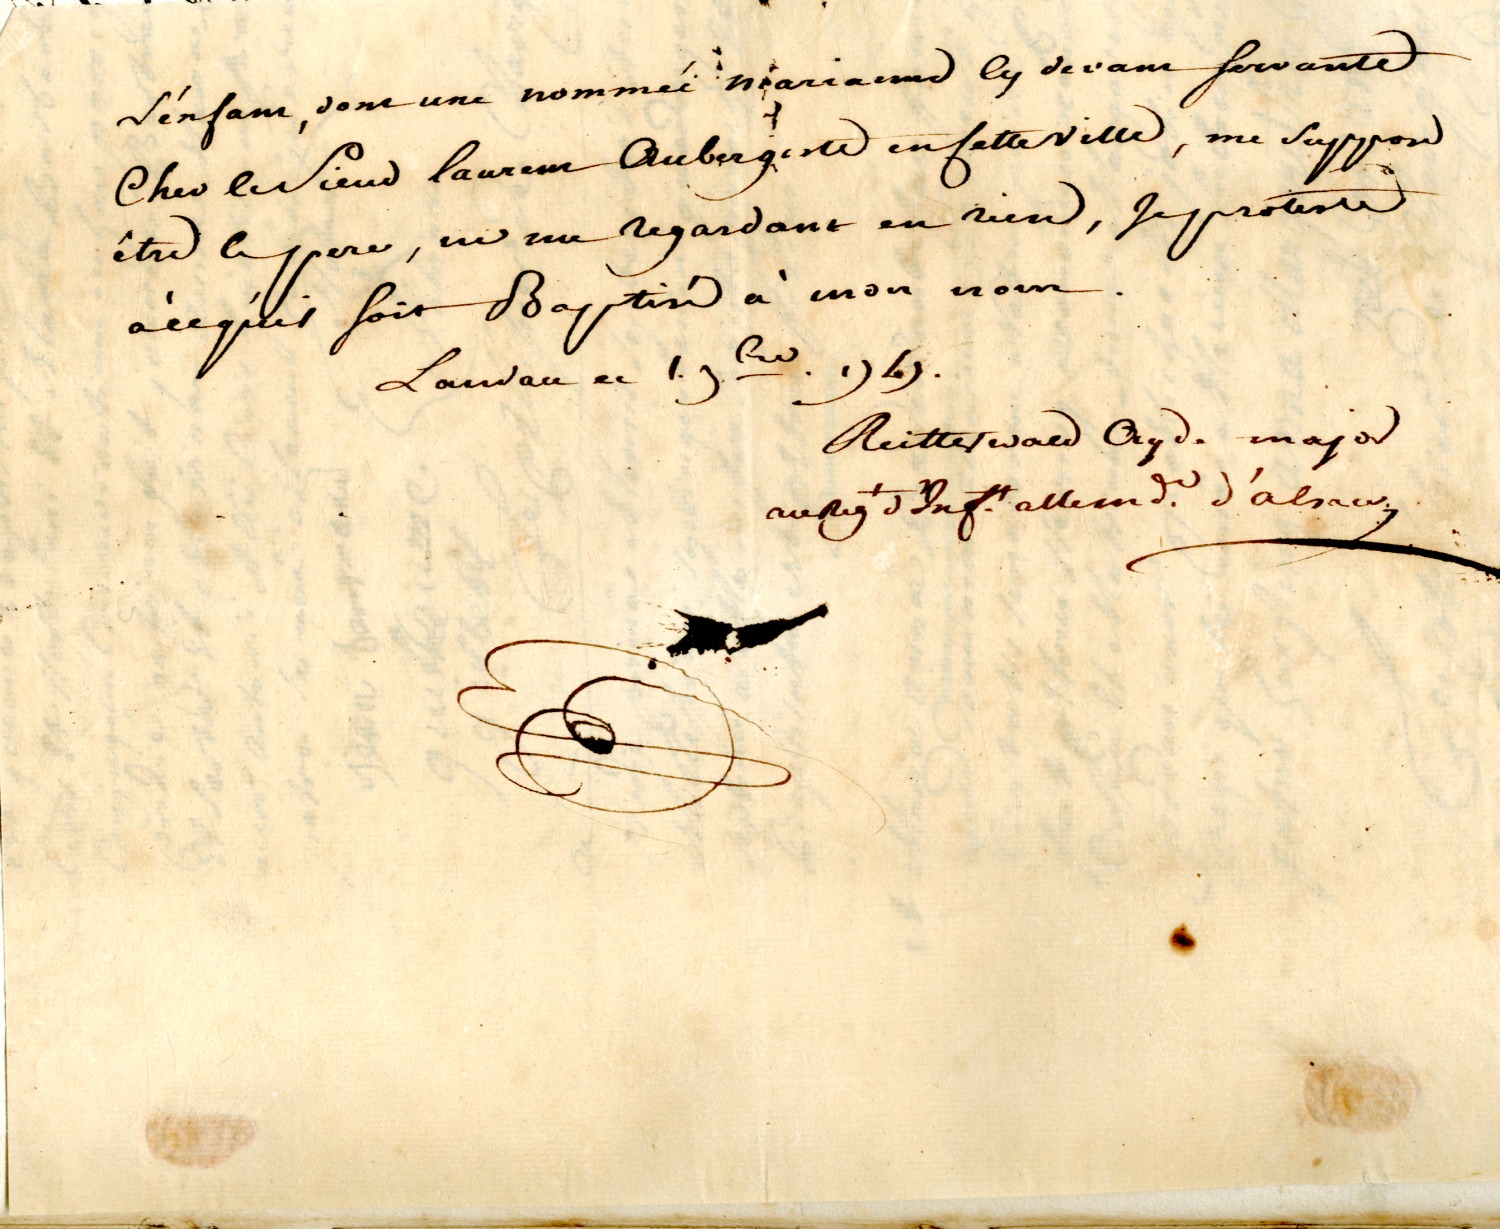 L'énfant, dont une nommeé marianne Cy devant servante
Chés le Sieur laurent Aubergiste en Cette Ville, me suppose
être le pere, ne me regardant en rien, Je proteste
à ce qu'il soit Baptisé à mon nom.
Landau ce 1. 9bre. 1747.
Reitterwald Ayd. major
au Regt d'Inft. allemde. d'alsace